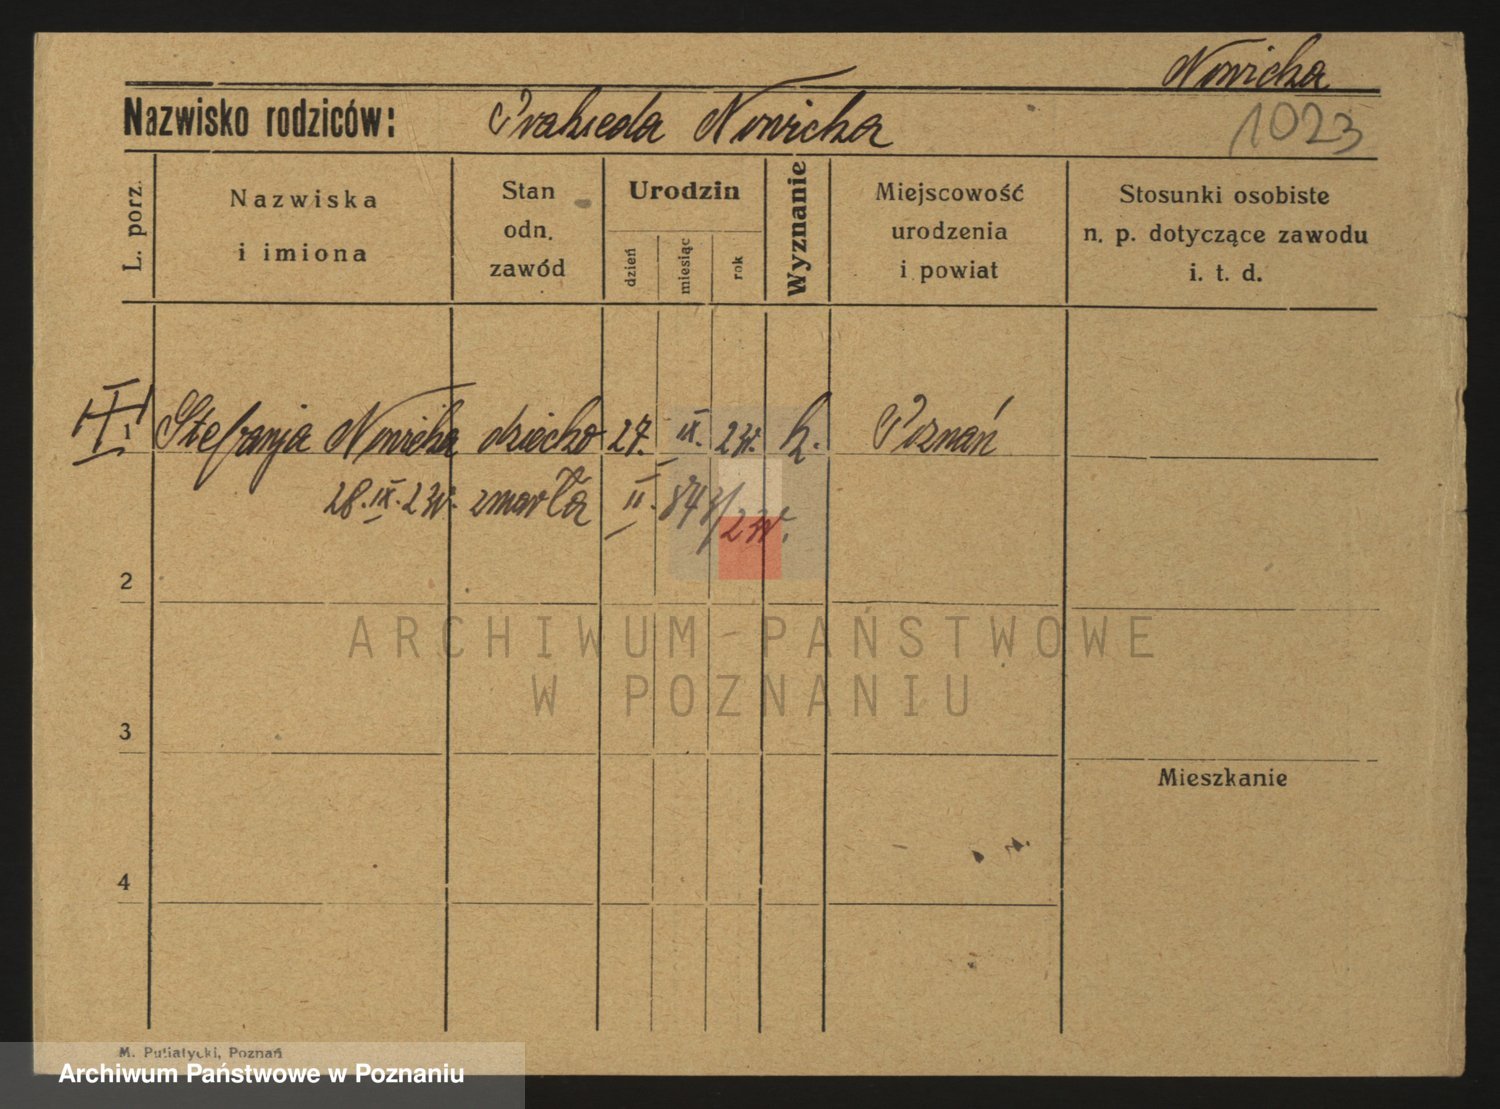 Nowicka
Nazwisko rodziców: Prakseda Nowicka
1023
L. porz.
Nazwiska
i imiona
Stan
odn.
zawód
Urodzin
dzień
miesiąc
rok
Wyznanie
Miejscowość
urodzenia
i powiat
Stosunki osobiste
n. p. dotyczące zawodu
i. t. d.
1 Stefanja Nowicka dziecko 27. IX. 24. k. Poznań
28. IX. 24. zmarła II. 874/24.
2
ARCHIWUM PAŃSTWOWE
W POZNANIU
3
Mieszkanie
4
M. Putiatycki, Poznań
Archiwum Państwowe w Poznaniu